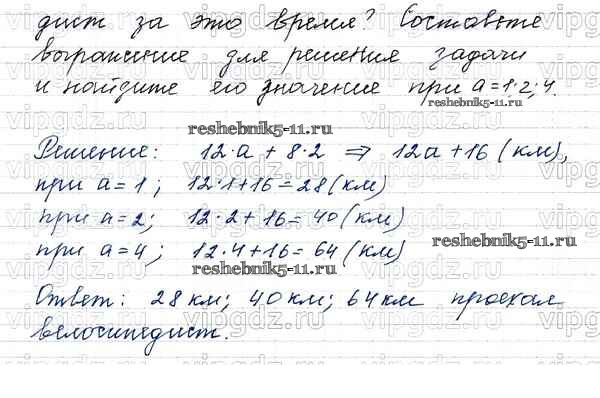 дист за это время? Составьте
выражение для решения задачи
и найдите его значение при a=1; 2; 4.
reshebnik5-11.ru
reshebnik5-11.ru
Решение: 12·a + 8·2 ⇒ 12a + 16 (км),
при a = 1; 12·1+16 = 28 (км)
при a = 2; 12·2 + 16 = 40 (км)
при a = 4; 12·4+16 = 64 (км)
reshebnik5-11.ru
reshebnik5-11.ru
Ответ: 28 км; 40 км; 64 км проехал
велосипедист.
vipgdz.ru